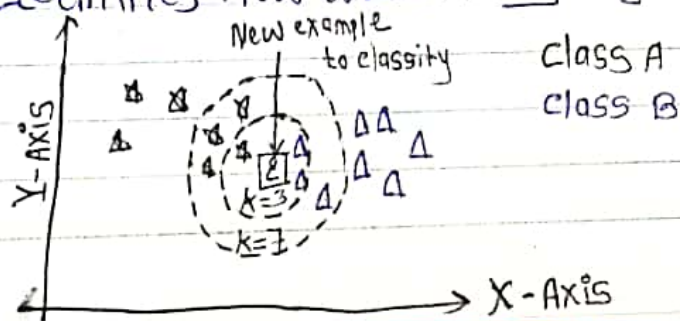 New example
to classity
Class A
Class B
Y-AXIS
ε
k=3
k=7
X-AXIS